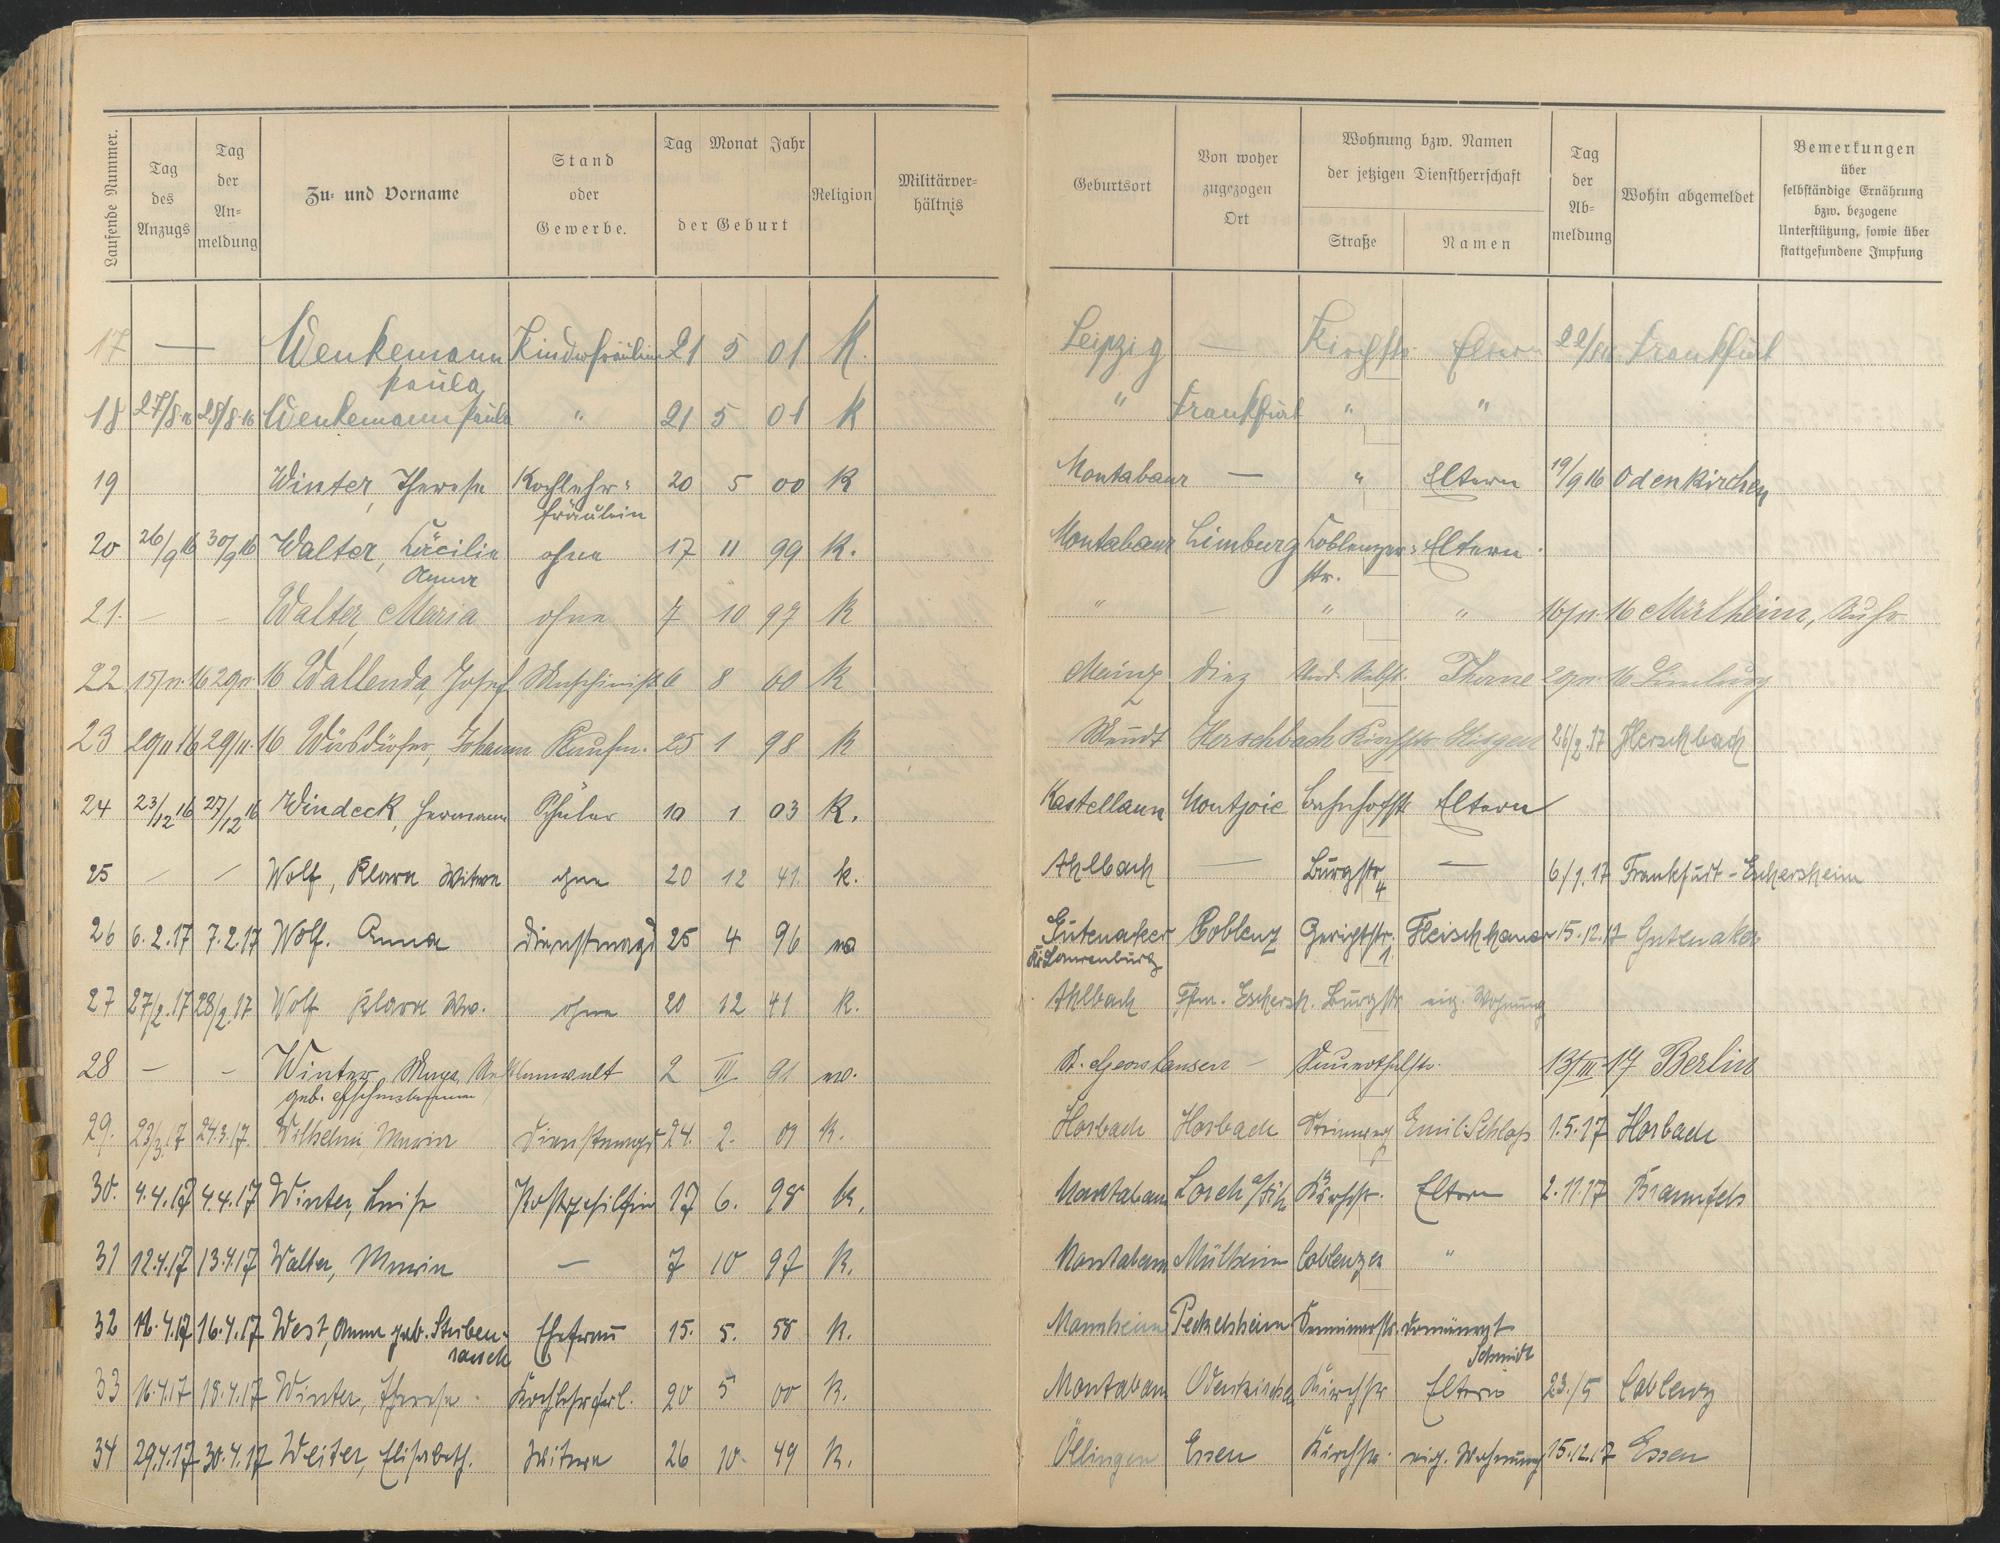 Laufende Nummer.
Tag des Anzugs
Tag der An-meldung
Zu- und Vorname
Stand oder Gewerbe.
Tag Monat Jahr
der Geburt
Religion
Militärver-hältnis
Geburtsort
Von woher zugezogen Ort
Wohnung bzw. Namen
der jetzigen Dienstherrschaft
Straße
Namen
Tag der Ab-meldung
Wohin abgemeldet
Bemerkungen
über
selbständige Ernährung
bzw. bezogene
Unterstützung, sowie über
stattgefundene Impfung
17 — Wenkemann Kinderfräulein 21 5 01 K. Leipzig — Kirchstr. Eltern Frankfurt
Paula
18 27/8.16 28/8.16 Wenkemann Paula " 21 5 01 K " Frankfurt " "
19 Winter, Therese Kochlehr- 20 5 00 K Montabaur — " Eltern 19/9 16 Odenkirchen
fräulein
20 26/9 16 30/9 16 Walter, Cäcilie ohne 17 11 99 K. Montabaur Limburg Coblenzer- Eltern.
Anna str.
21. — – Walter, Maria ohne 7 10 97 K " — " " 16 Mülheim, Ruhr
22 16 16 Wallenda, Josef Maschinist 6 8 K Mainz Diez Thome 16 Limburg
23 29/11 16 29/11. 16 Johann Kaufm. 25 1 98 K Herschbach Kirchstr. 26/2.17 Herschbach
24 23/12 16 27/12 16 Windeck, Hermann Schüler 10 1 03 K. Kastellaun Montjoie Bahnhofstr. Eltern
25 — — Wolf, Klara Witwe ohne 20 12 41. K. Ahlbach — Burgstr. 4 — 6/1.17 Frankfurt-Eschersheim
26 6.2.17 7.2.17 Wolf. Anna Dienstmagd 25 4 96 ev Gutenaker Coblenz Gerichtstr. 1. 15.12.17 Gutenaker
Laurenburg
27 27/2.17 28/2.17 Wolf Klara Ww. ohne 20 12 41 K. Ahlbach Ffm. Eschersh. Burgstr. eig. Wohnung
28 — – Winter, 2 III 91 ev. – Sauertalstr. 13/III 17 Berlin
geb.
29. 23/3.17 24.3.17. Wilhelmi Maria Dienstmagd 24. 2. 01 K. Horbach Horbach Steinweg Emil Schloß 1.5.17 Horbach
30. 4.4.17 4.4.17 Winter, Luise Postgehilfin 17 6. 98 K. Montabaur Lorch a/Rh Kirchstr. Eltern 2.11.17 Braunfels
31 12.4.17 13.4.17 Walter, Maria — 7 10 97 K. Montabaur Mülheim Coblenzer "
32 16.4.17 16.4.17 West, Anna geb. Stuben- Ehefrau 15. 5. 58 K. Mannheim Peckelsheim Seminarstr.
rauch Schmidt
33 16.4.17 18.4.17 Winter, Therese Kochlehrfrl. 20 5 00 K. Montabaur Odenkirchen Kirchstr Eltern 23./5 Coblenz
34 29.4.17 30.4.17 Weiter, Elisabeth. Witwe 26 10. 49 K. Öllingen Essen Kirchstr. eig. Wohnung 15.12.17 Essen